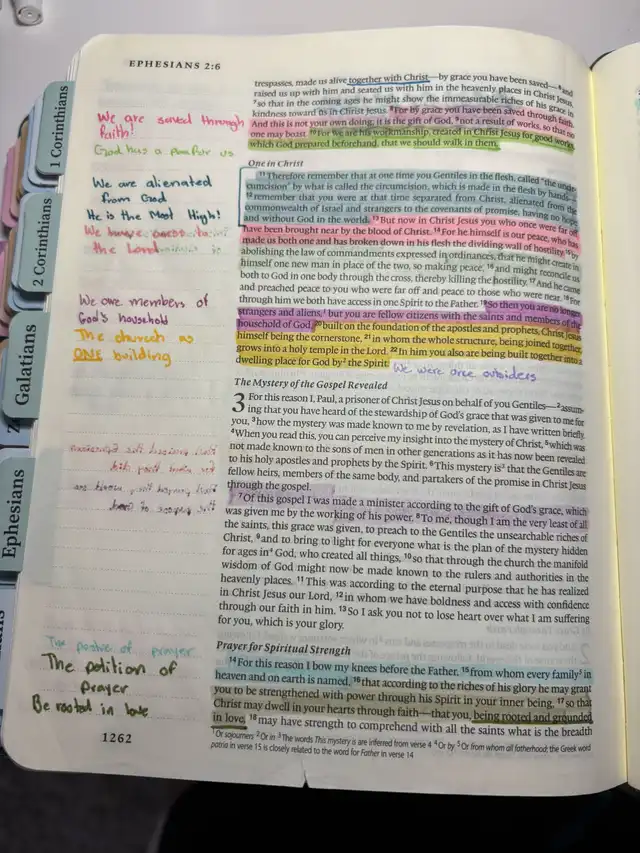 EPHESIANS 2:6
trespasses, made us alive together with Christ—by grace you have been saved— ⁶and
raised us up with him and seated us with him in the heavenly places in Christ Jesus,
⁷so that in the coming ages he might show the immeasurable riches of his grace in
kindness toward us in Christ Jesus. ⁸For by grace you have been saved through faith.
And this is not your own doing; it is the gift of God, ⁹not a result of works, so that no
one may boast. ¹⁰For we are his workmanship, created in Christ Jesus for good works,
which God prepared beforehand, that we should walk in them.
One in Christ
¹¹Therefore remember that at one time you Gentiles in the flesh, called "the uncircumcision"
by what is called the circumcision, which is made in the flesh by hands—
¹²remember that you were at that time separated from Christ, alienated from the
commonwealth of Israel and strangers to the covenants of promise, having no hope
and without God in the world. ¹³But now in Christ Jesus you who once were far off
have been brought near by the blood of Christ. ¹⁴For he himself is our peace, who has
made us both one and has broken down in his flesh the dividing wall of hostility ¹⁵by
abolishing the law of commandments expressed in ordinances, that he might create in
himself one new man in place of the two, so making peace, ¹⁶and might reconcile us
both to God in one body through the cross, thereby killing the hostility. ¹⁷And he came
and preached peace to you who were far off and peace to those who were near. ¹⁸For
through him we both have access in one Spirit to the Father. ¹⁹So then you are no longer
strangers and aliens,¹ but you are fellow citizens with the saints and members of the
household of God, ²⁰built on the foundation of the apostles and prophets, Christ Jesus
himself being the cornerstone, ²¹in whom the whole structure, being joined together,
grows into a holy temple in the Lord. ²²In him you also are being built together into a
dwelling place for God by² the Spirit.
We were once outsiders
The Mystery of the Gospel Revealed
3 For this reason I, Paul, a prisoner of Christ Jesus on behalf of you Gentiles— ²assuming
that you have heard of the stewardship of God's grace that was given to me for
you, ³how the mystery was made known to me by revelation, as I have written briefly.
⁴When you read this, you can perceive my insight into the mystery of Christ, ⁵which was
not made known to the sons of men in other generations as it has now been revealed
to his holy apostles and prophets by the Spirit. ⁶This mystery is³ that the Gentiles are
fellow heirs, members of the same body, and partakers of the promise in Christ Jesus
through the gospel.
⁷Of this gospel I was made a minister according to the gift of God's grace, which
was given me by the working of his power. ⁸To me, though I am the very least of all
the saints, this grace was given, to preach to the Gentiles the unsearchable riches of
Christ, ⁹and to bring to light for everyone what is the plan of the mystery hidden
for ages in⁴ God, who created all things, ¹⁰so that through the church the manifold
wisdom of God might now be made known to the rulers and authorities in the
heavenly places. ¹¹This was according to the eternal purpose that he has realized
in Christ Jesus our Lord, ¹²in whom we have boldness and access with confidence
through our faith in him. ¹³So I ask you not to lose heart over what I am suffering
for you, which is your glory.
Prayer for Spiritual Strength
¹⁴For this reason I bow my knees before the Father, ¹⁵from whom every family⁵ in
heaven and on earth is named, ¹⁶that according to the riches of his glory he may grant
you to be strengthened with power through his Spirit in your inner being, ¹⁷so that
Christ may dwell in your hearts through faith—that you, being rooted and grounded
in love, ¹⁸may have strength to comprehend with all the saints what is the breadth
¹Or sojourners ²Or in ³The words This mystery is are inferred from verse 4 ⁴Or by ⁵Or from whom all fatherhood; the Greek word
patria in verse 15 is closely related to the word for Father in verse 14
1262
We are saved through
faith!
God has a plan for us
We are alienated
from God
He is the Most High!
We have access to
the Lord
We are members of
God's household
The church as
ONE building
The posture of prayer
The petition of
prayer
Be rooted in love
1 Corinthians
2 Corinthians
Galatians
Ephesians